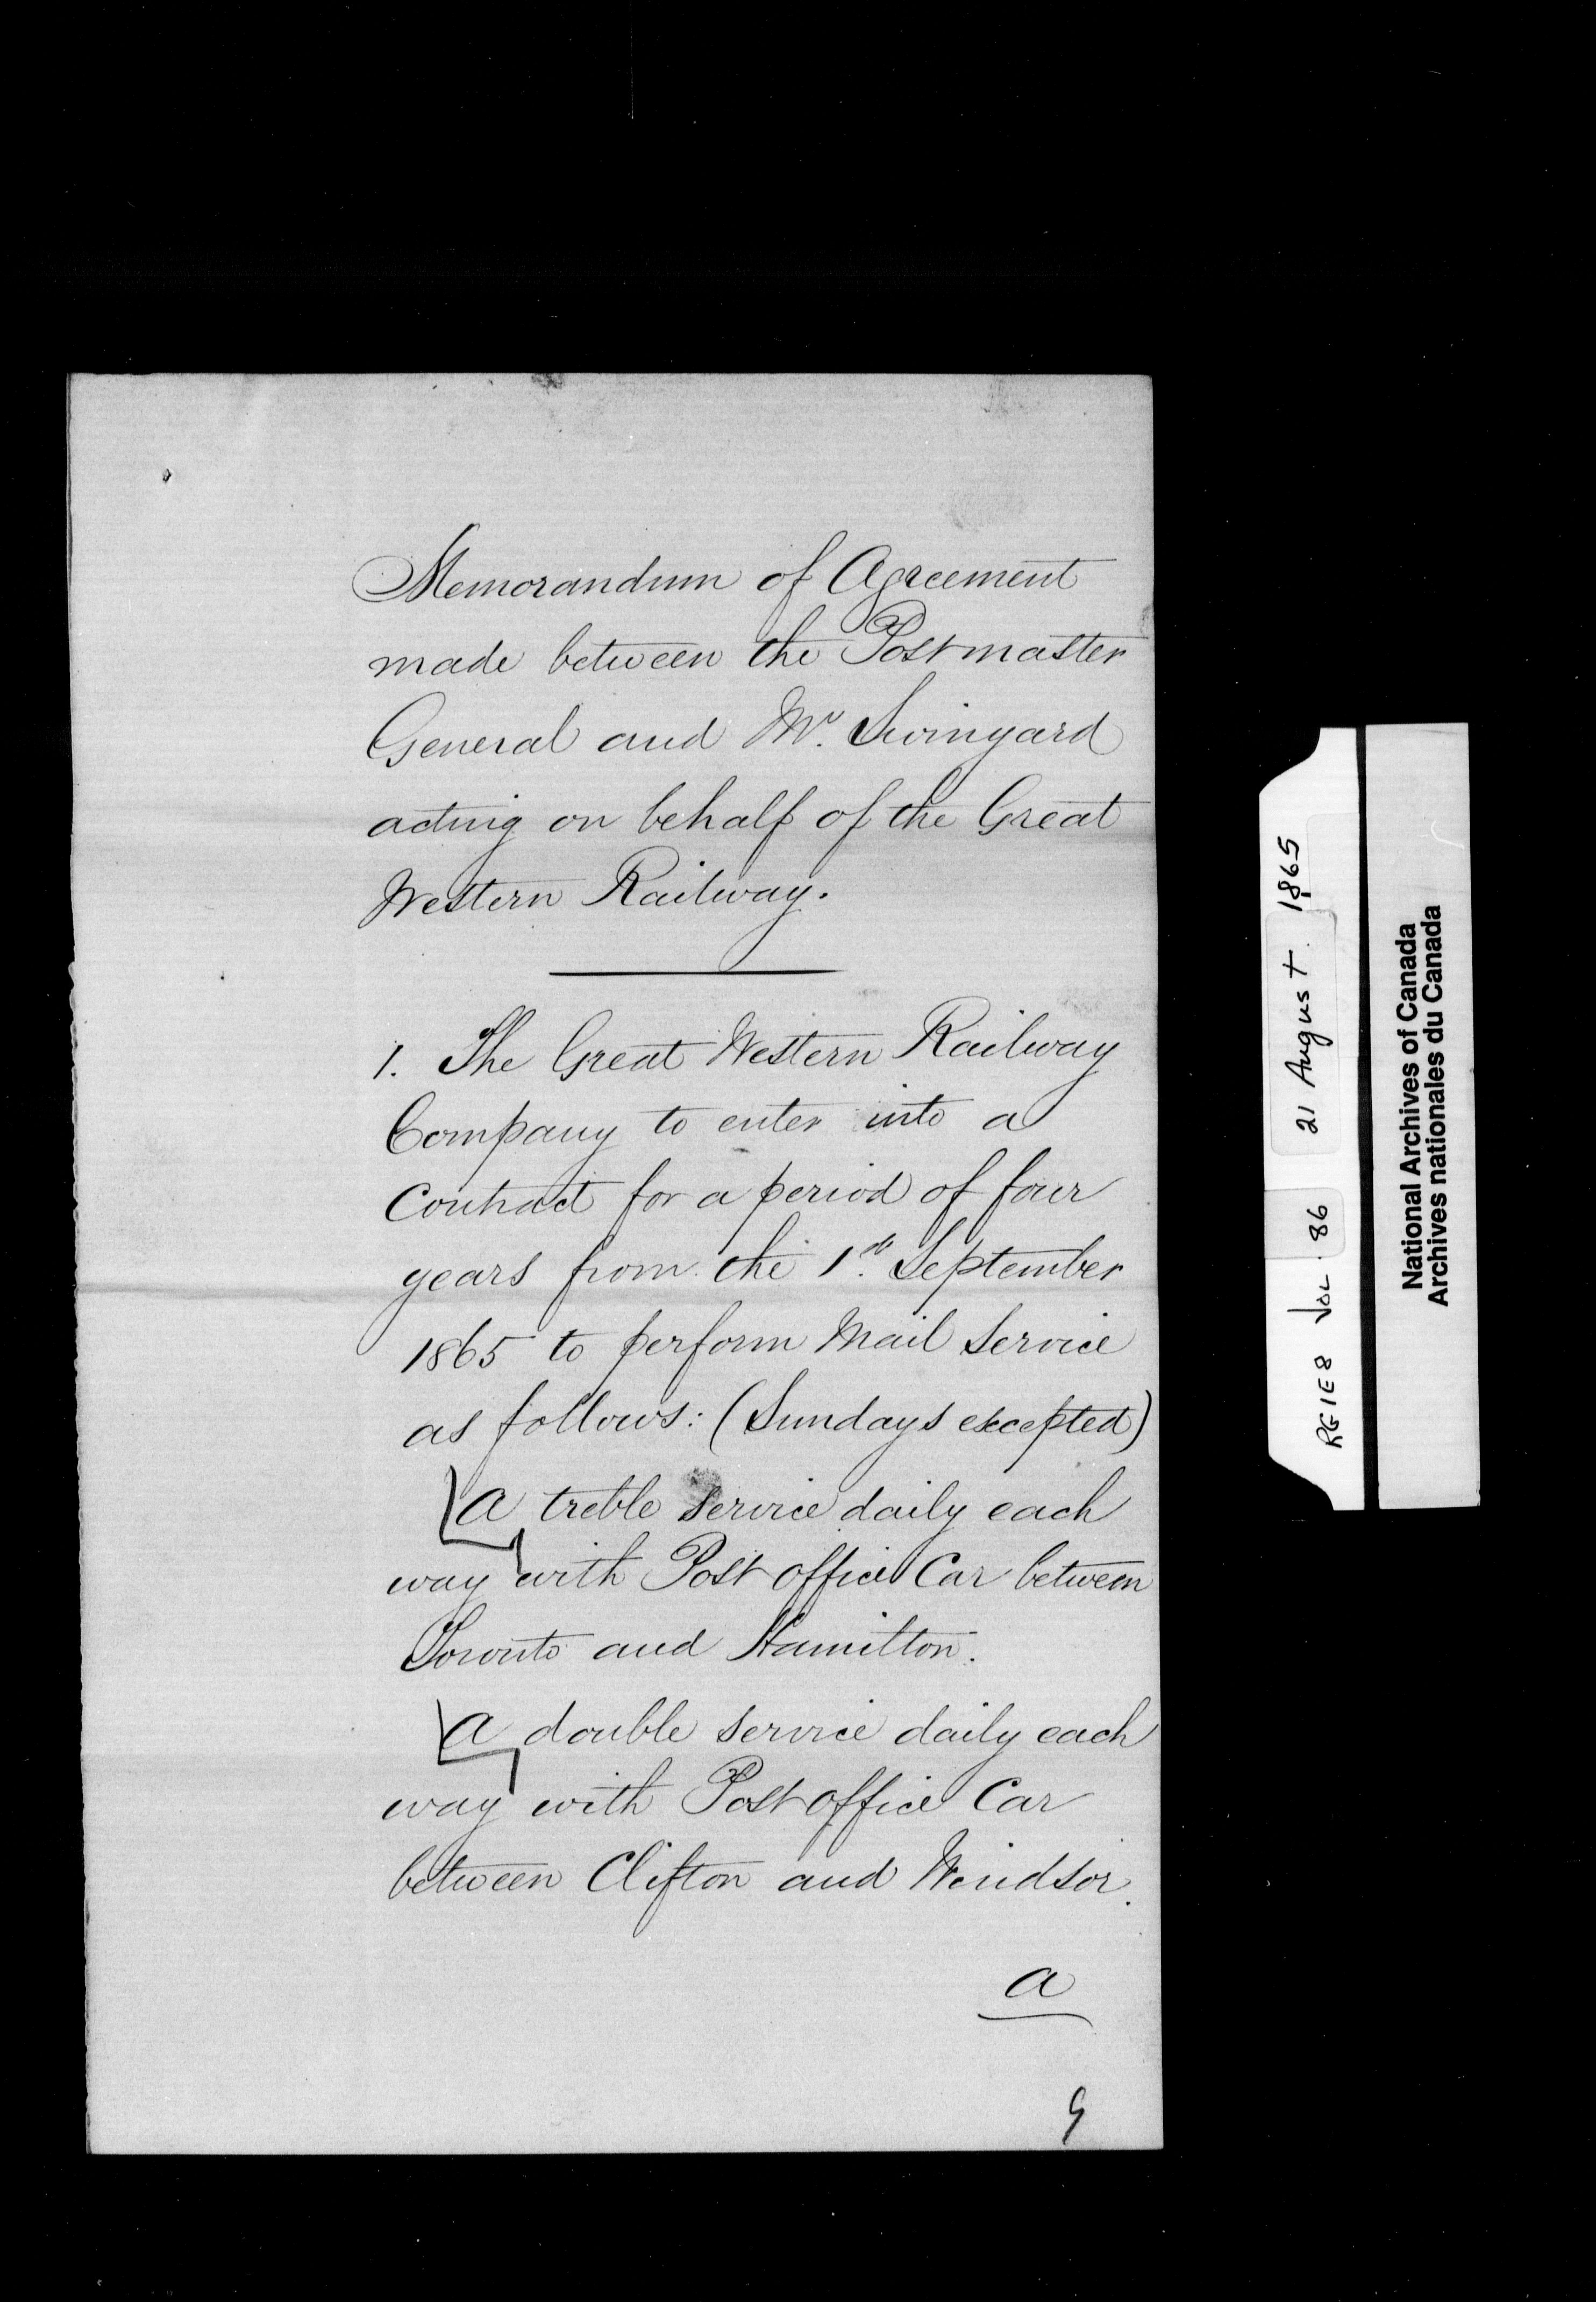 Memorandum of Agreement
made between the Postmaster
General and Mr. Swinyard
acting on behalf of the Great
Western Railway.
1. The Great Western Railway
Company to enter into a
Contract for a period of four
years from the 1st. September
1865 to perform Mail Service
as follows: (Sundays excepted)
A treble service daily each
way with Post office Car between
Toronto and Hamilton.
A double service daily each
way with Post office Car
between Clifton and Windsor.
a
9
RG1E8 VOL. 86 21 August 1865
National Archives of Canada
Archives nationales du Canada